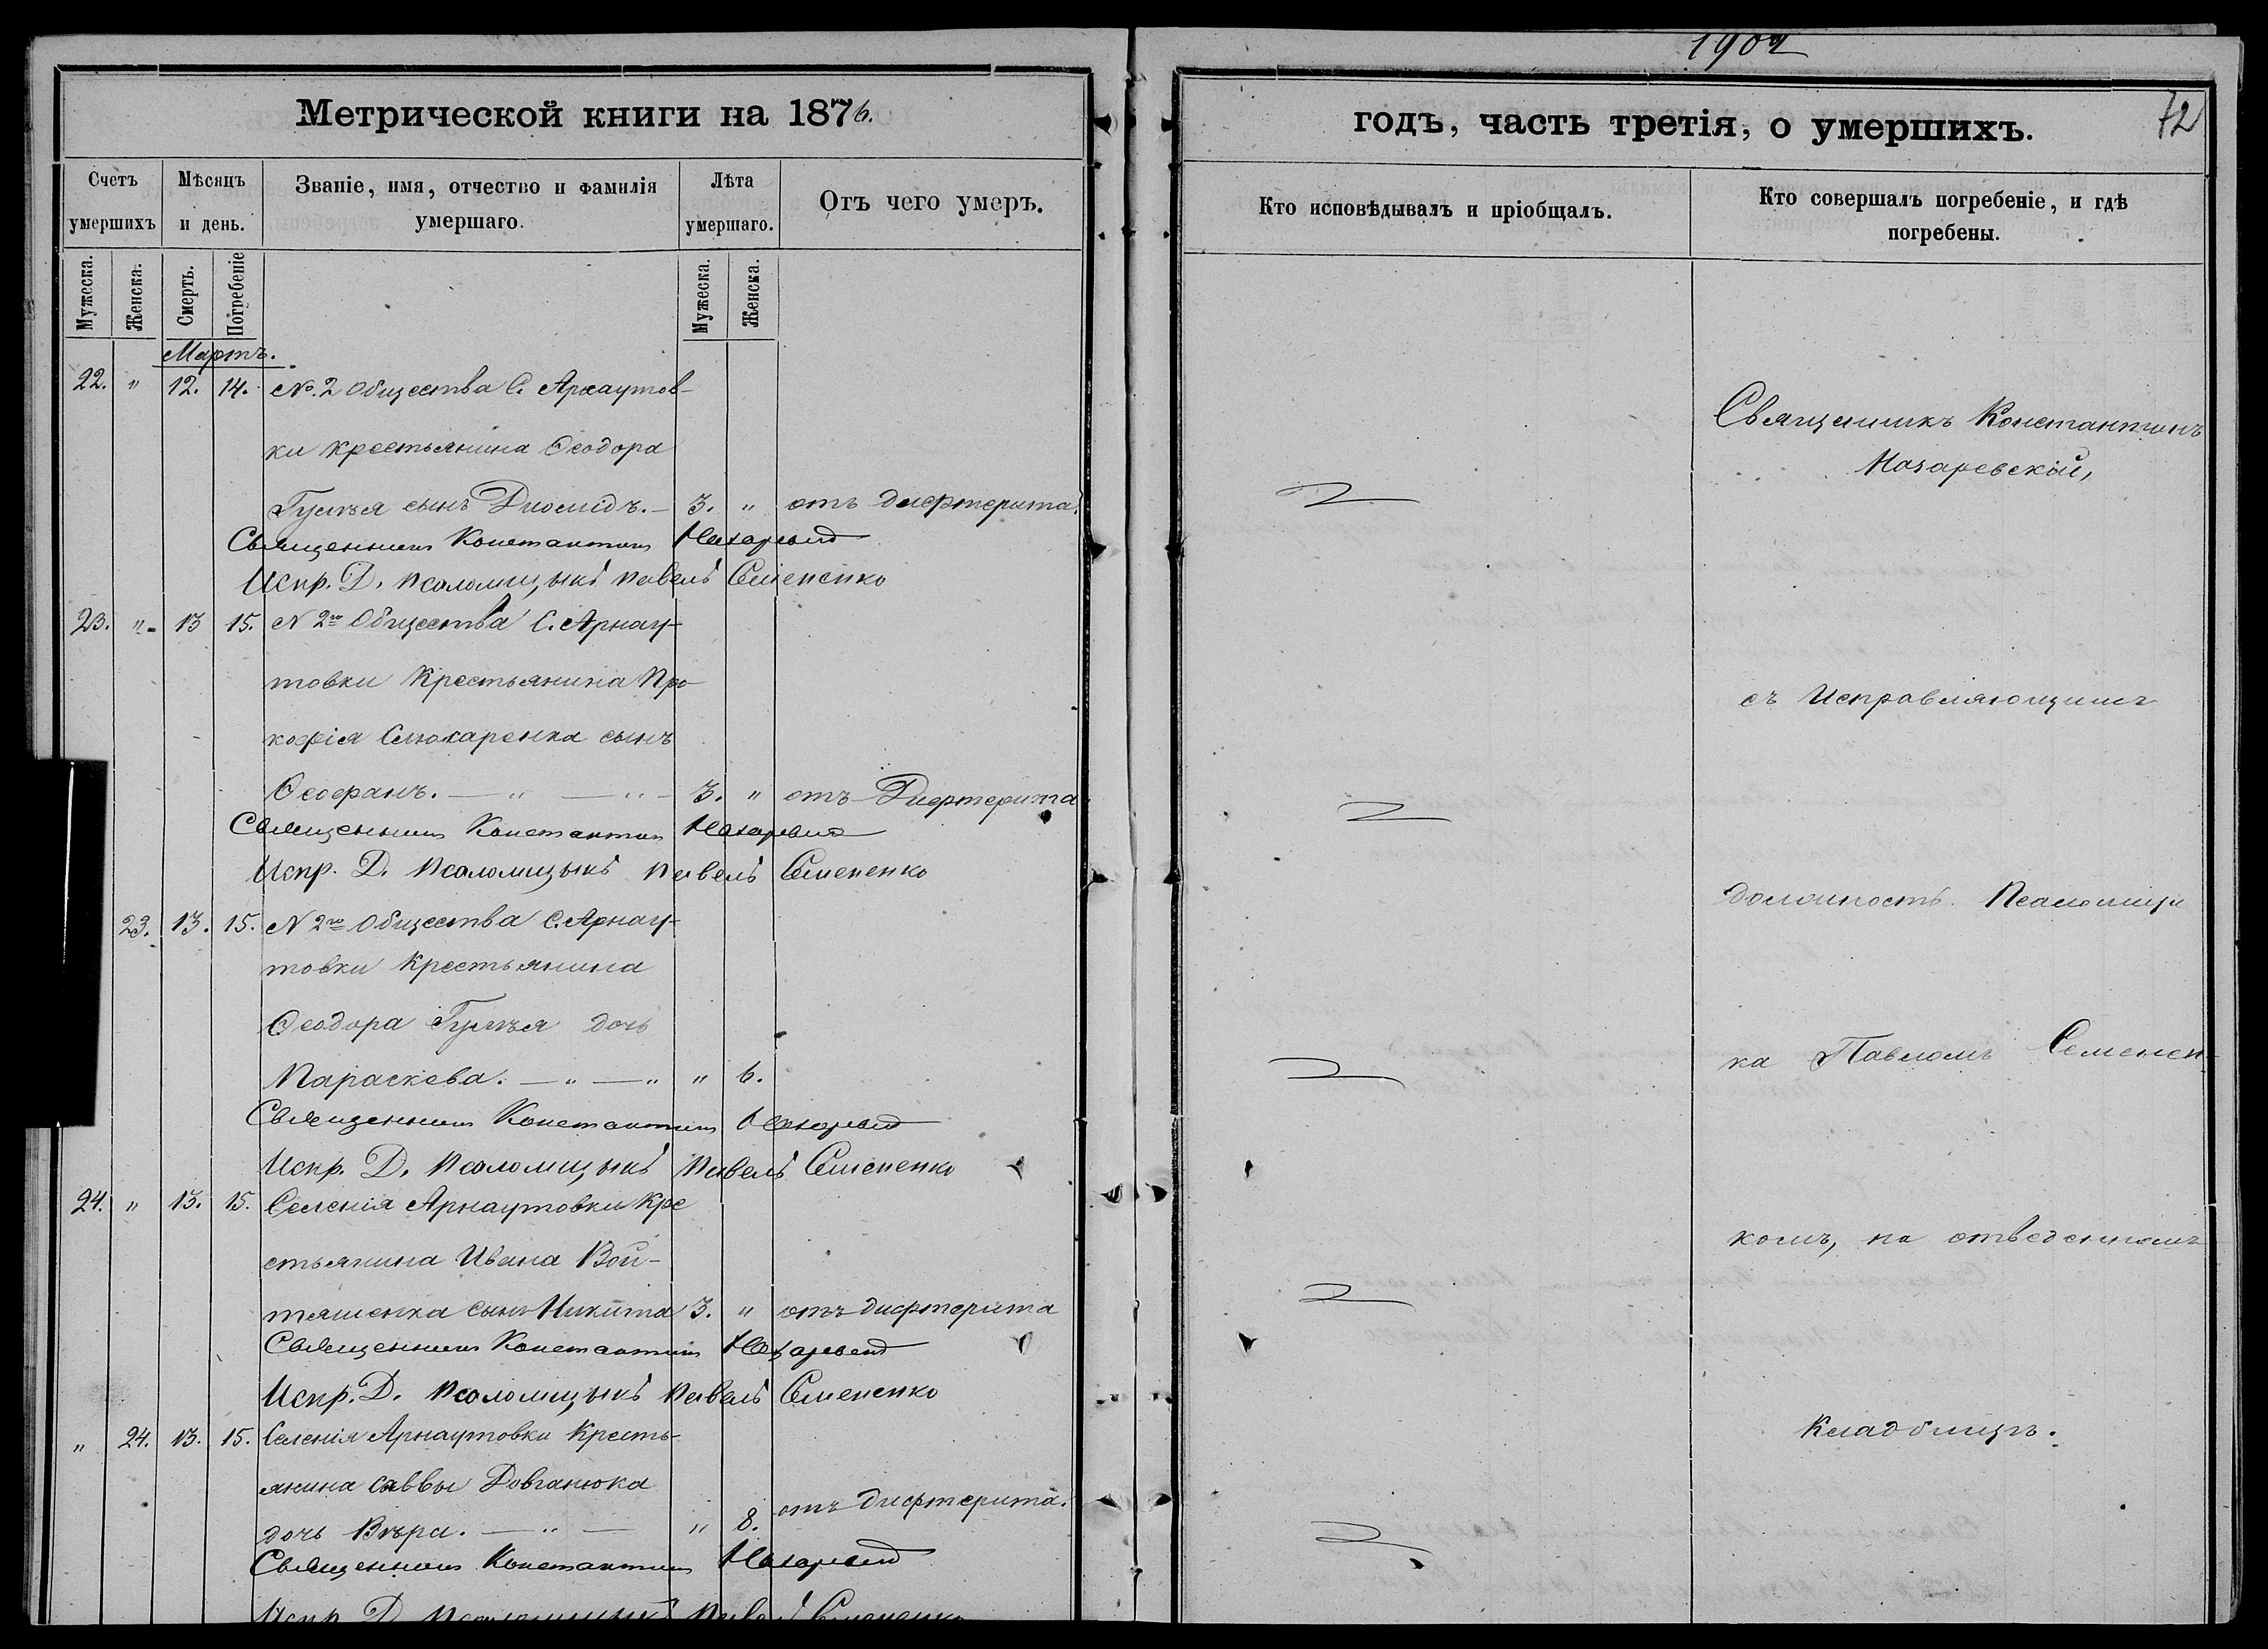 1902
Метрической книги на 1876.
годъ, часть третія, о умершихъ.
72
Счетъ умершихъ
Мѣсяцъ и день.
Званіе, имя, отчество и фамилія умершаго.
Лѣта умершаго.
Отъ чего умеръ.
Кто исповѣдывалъ и пріобщалъ.
Кто совершалъ погребеніе, и гдѣ погребены.
Мужеска.
Женска.
Смерть.
Погребеніе
Мужеска.
Женска.
Мартъ.
22. " 12. 14. No. 2 Общества С. Арнаутов-
ки крестьянина Ѳеодора
сынъ Діомидъ. — 3. " отъ дифтерита.
Священникъ Константинъ
Испр. Д. Псаломщыкъ Павелъ Семененко
23. " 13 15. N 2го Общества С. Арнау-
товки Крестьянина Про-
кофія сынъ
Ѳеофанъ. — " — " 3. " отъ Дифтерита
Священникъ Константинъ
Испр. Д. Псаломщыкъ Павелъ Семененко
23. 13. 15. N 2го Общества С. Арнау-
товки Крестьянина
Ѳеодора дочь
Параскева. — " — " " 6.
Священникъ Константинъ
Испр. Д. Псаломщыкъ Павелъ Семененко
24. " 13. 15. Селенія Арнаутовки Кре
стьянина Ивана Вой-
тяшенка сынъ Никита 3. " отъ дифтерита
Священникъ Константинъ
Испр. Д. Псаломщыкъ Павелъ Семененко
" 24. 13. 15. Селенія Арнаутовки Кресть-
янина Саввы Довганюка
дочь Вѣра. — " — " 8. отъ дифтерита.
Священникъ Константинъ
Испр. Д. Псаломщыкъ Павелъ Семененко
Священникъ Константинъ
Назаревскій,
съ Исправляющимъ
должность Псаломщи
ка Павломъ Семенен-
комъ, на отведенномъ
Кладбищѣ.